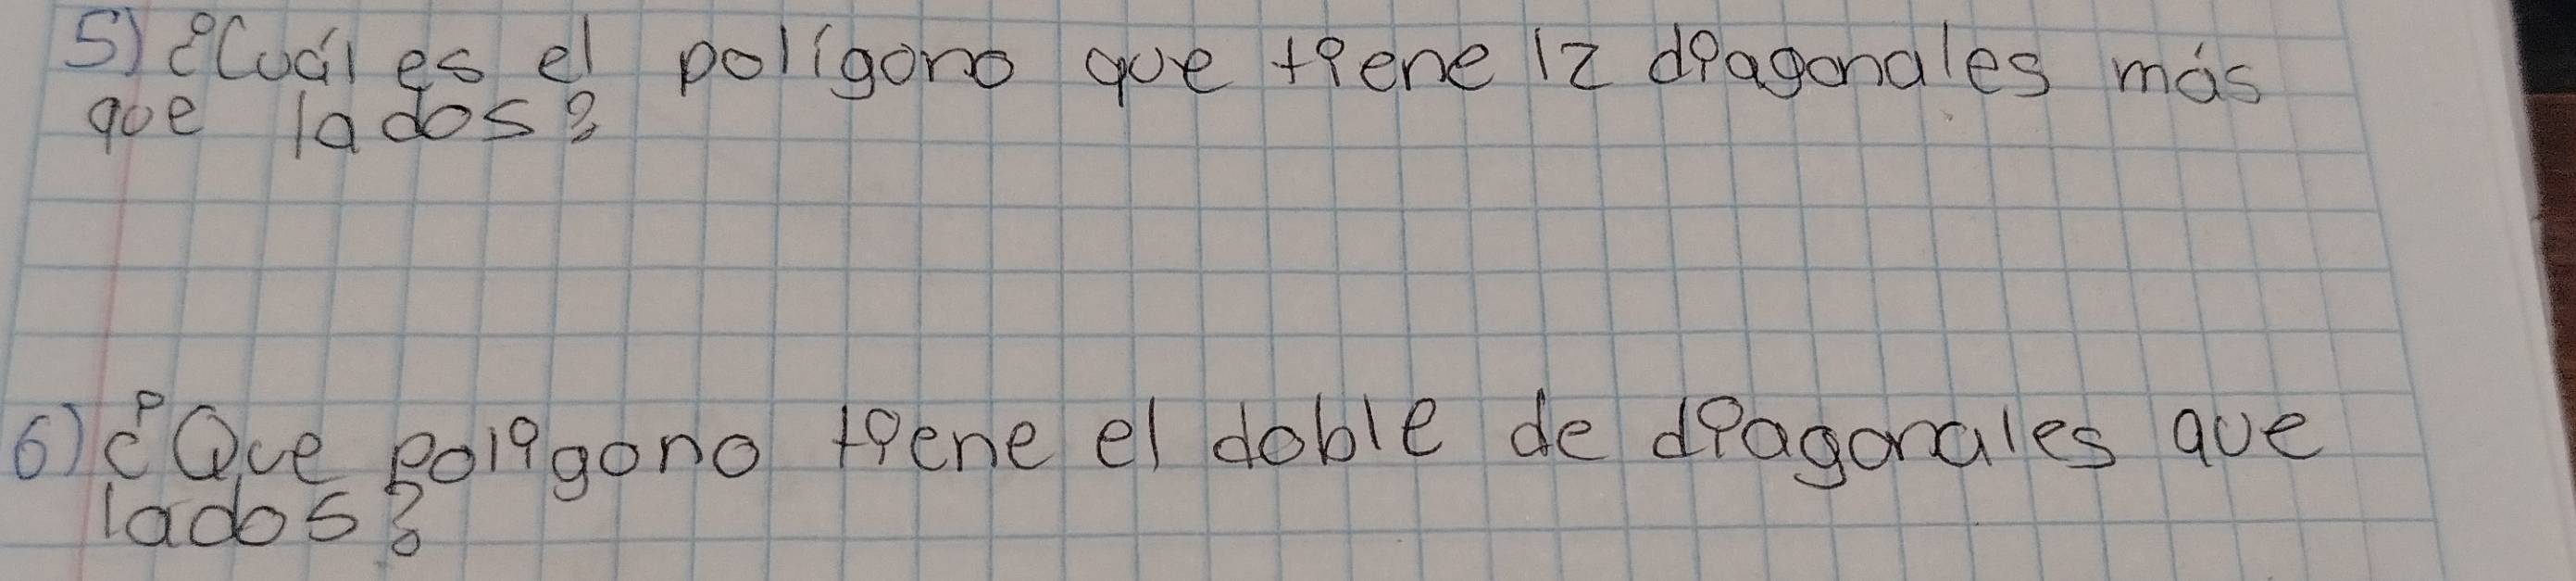 5) ¿Cuál es el polígono que tiene 12 diagonales más
que lados?
6) ¿Que poligono tiene el doble de diagonales que
lados?